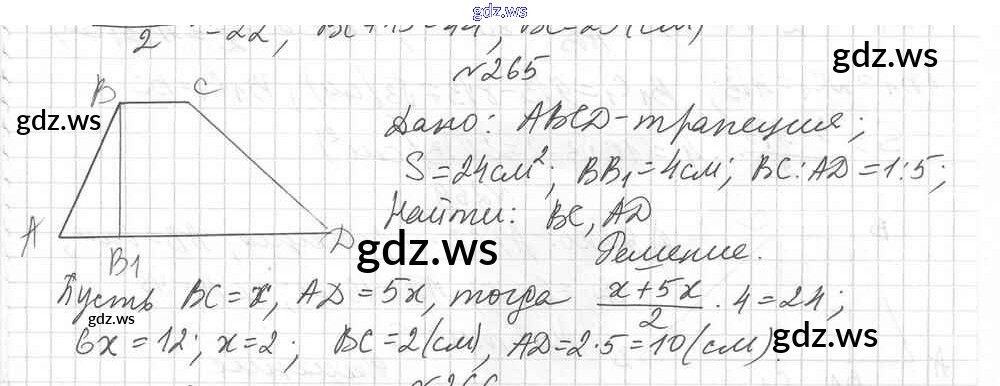 gdz.ws
2 = 22, BC + 15 = 44, BC = 29 (см)
gdz.ws
№265
B C
gdz.ws
Дано: ABCD - трапеция;
S = 24 см²; BB₁ = 4 см; BC : AD = 1 : 5;
Найти: BC, AD
A B1 D
gdz.ws
Решение.
Пусть BC = x, AD = 5x, тогда (x + 5x)/2 · 4 = 24;
gdz.ws
gdz.ws
6x = 12; x = 2; BC = 2 (см), AD = 2 · 5 = 10 (см).
№266